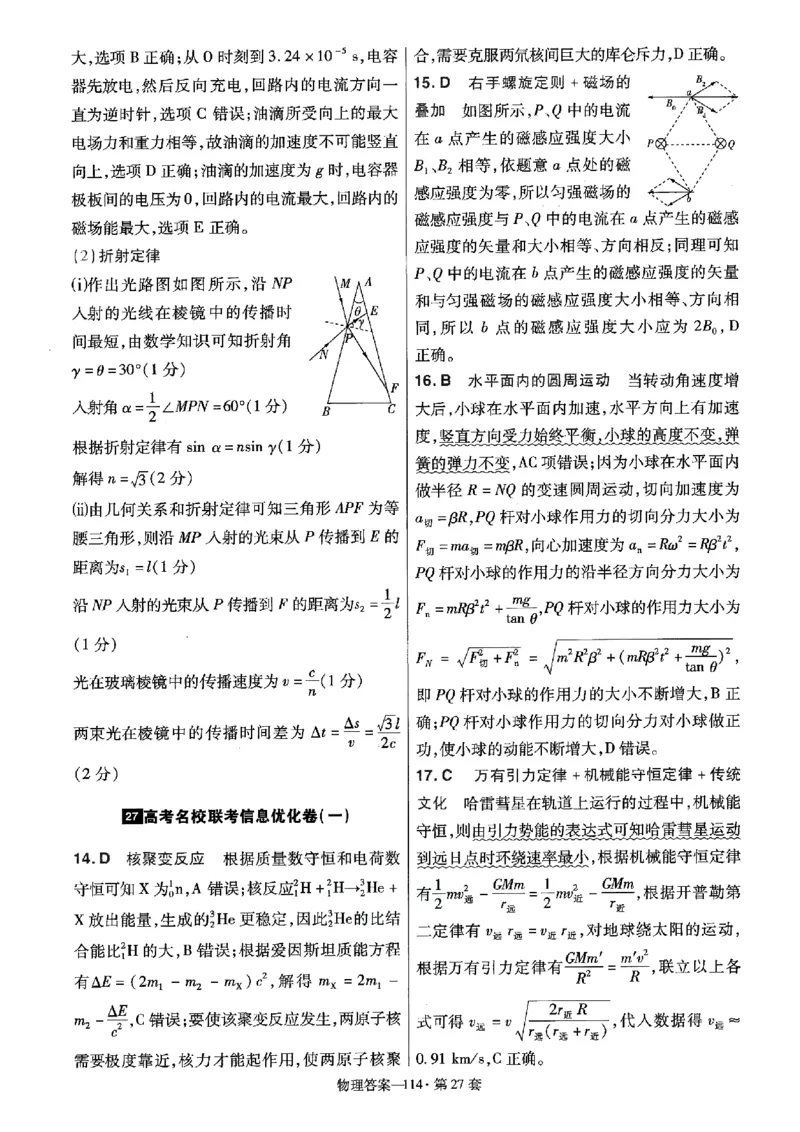 大,选项 B 正确;从 0 时刻到 3.24×10⁻⁵ s,电容
器先放电,然后反向充电,回路内的电流方向一
直为逆时针,选项 C 错误;油滴所受向上的最大
电场力和重力相等,故油滴的加速度不可能竖直
向上,选项 D 正确;油滴的加速度为 g 时,电容器
极板间的电压为0,回路内的电流最大,回路内的
磁场能最大,选项 E 正确。
(2)折射定律
(ⅰ)作出光路图如图所示,沿 NP
入射的光线在棱镜中的传播时
间最短,由数学知识可知折射角
γ=θ=30°(1 分)
入射角 α=1/2∠MPN=60°(1 分)
根据折射定律有 sin α=nsin γ(1 分)
解得 n=√3(2 分)
(ⅱ)由几何关系和折射定律可知三角形 APF 为等
腰三角形,则沿 MP 入射的光束从 P 传播到 E 的
距离为s₁=l(1 分)
沿 NP 入射的光束从 P 传播到 F 的距离为s₂=1/2 l
(1 分)
光在玻璃棱镜中的传播速度为 v=c/n(1 分)
两束光在棱镜中的传播时间差为 Δt=Δs/v=√3l/2c
(2 分)
M A
θ E
γ
P
N
F
B C
27高考名校联考信息优化卷(一)
14. D 核聚变反应 根据质量数守恒和电荷数
守恒可知 X 为¹₀n,A 错误;核反应²₁H+²₁H→³₂He+
X 放出能量,生成的³₂He 更稳定,因此³₂He的比结
合能比²₁H 的大,B 错误;根据爱因斯坦质能方程
有ΔE=(2m₁-m₂-mX)c²,解得 mX=2m₁-
m₂-ΔE/c²,C 错误;要使该聚变反应发生,两原子核
需要极度靠近,核力才能起作用,使两原子核聚
合,需要克服两氘核间巨大的库仑斥力,D 正确。
15. D 右手螺旋定则+磁场的
叠加 如图所示,P、Q 中的电流
在 a 点产生的磁感应强度大小
B₁、B₂ 相等,依题意 a 点处的磁
感应强度为零,所以匀强磁场的
磁感应强度与 P、Q 中的电流在 a 点产生的磁感
应强度的矢量和大小相等、方向相反;同理可知
P、Q 中的电流在 b 点产生的磁感应强度的矢量
和与匀强磁场的磁感应强度大小相等、方向相
同,所以 b 点的磁感应强度大小应为 2B₀,D
正确。
B₂
a
B₀
P Q
b
16. B 水平面内的圆周运动 当转动角速度增
大后,小球在水平面内加速,水平方向上有加速
度,竖直方向受力始终平衡,小球的高度不变,弹
簧的弹力不变,AC 项错误;因为小球在水平面内
做半径 R=NQ 的变速圆周运动,切向加速度为
a切=βR,PQ 杆对小球作用力的切向分力大小为
F切=ma切=mβR,向心加速度为 aₙ=Rω²=Rβ²t²,
PQ 杆对小球的作用力的沿半径方向分力大小为
Fₙ=mRβ²t²+mg/tan θ,PQ 杆对小球的作用力大小为
F_N=√(F²切+F²ₙ)=√(m²R²β²+(mRβ²t²+mg/tan θ)²),
即 PQ 杆对小球的作用力的大小不断增大,B 正
确;PQ 杆对小球作用力的切向分力对小球做正
功,使小球的动能不断增大,D 错误。
17. C 万有引力定律+机械能守恒定律+传统
文化 哈雷彗星在轨道上运行的过程中,机械能
守恒,则由引力势能的表达式可知哈雷彗星运动
到远日点时环绕速率最小,根据机械能守恒定律
有1/2 mv²远-GMm/r远=1/2 mv²近-GMm/r近,根据开普勒第
二定律有 v远 r远=v近 r近,对地球绕太阳的运动,
根据万有引力定律有GMm′/R²=m′v²/R,联立以上各
式可得 v远=v√(2r近R/r远(r远+r近)),代入数据得 v远≈
0.91 km/s,C 正确。
物理答案—114·第 27 套